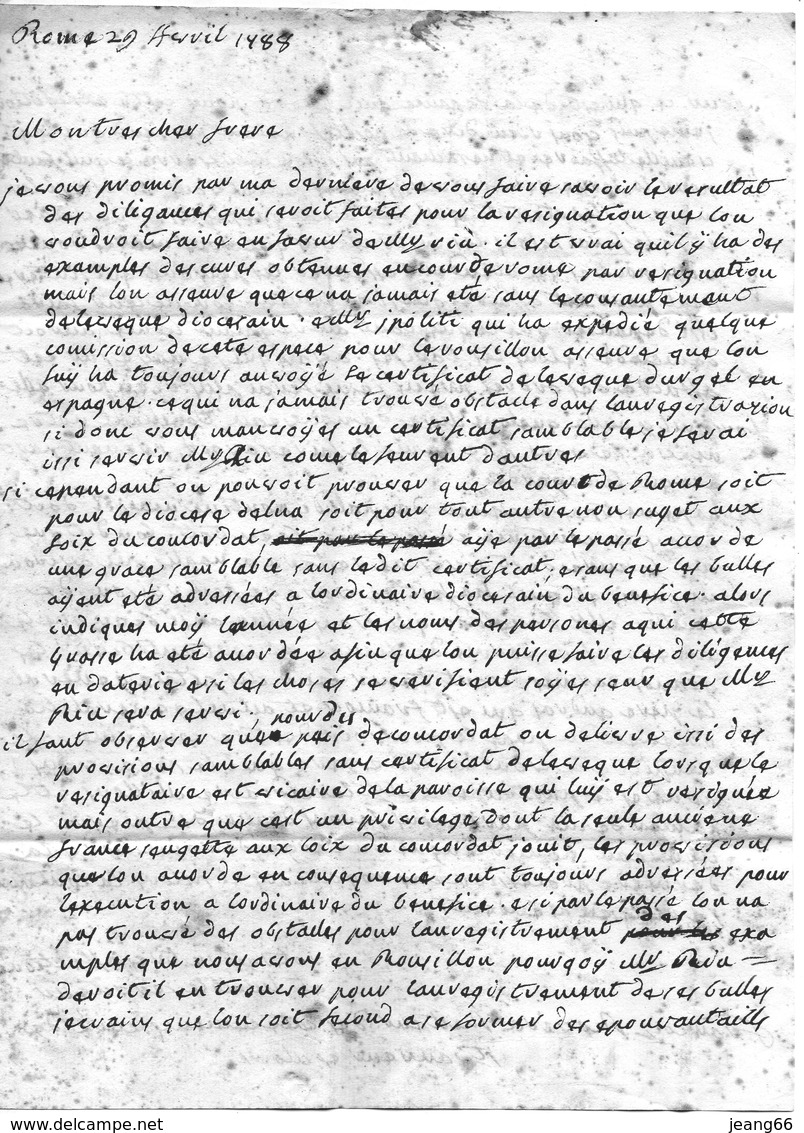 Rome 29 Avril 1788
Mon tres cher frere
je vous promis par ma derniere de vous faire savoir le resultat
des diligances qui seroit faites pour la resignation que lon
voudroit faire en faveur de Mr rià. il est vrai quil ÿ ha des
examples des cures obtenues en cour de rome par resignation
mais lon asseure que ce na jamais eté sans le consantement
de leveque diocesain. e Mr ipoliti qui ha expedié quelque
comission de cete espece pour le rousillon asseure que lon
luÿ ha toujours anvoÿé le certificat de leveque durgel en
espagne. ce qui na jamais trouvé obstacle dans lanregistrazion
si donc vous manvoÿes un certificat samblable je ferai
issi servir Mr Riu come le furent dautres
si cependant on pouvoit prouver que la cour de Rome soit
pour le diocese delna soit pour tout autre non suget aux
loix du concordat aÿe par le passé acordé
une grace samblable sans le dit certificat. e sans que les bulles
aÿent eté adressées a lordinaire diocesain du benefice. alors
indiques moÿ lannée et les noms des persones a qui cette
grasse ha eté acordée afin que lon puisse faire les diligences
en daterie e si les choses se verifient soÿes seur que Mr
Riu sera servi.
il faut observer que pour des pais de concordat on delivre issi des
provisions samblables sans certificat de leveque lorsque le
resignataire est vicaire de la paroisse qui luÿ est resignée
mais outre que cest un privilege dont la seule anciene
france sugette aux loix du concordat jouit, les provisions
que lon acorde en consequence sont toujours adressées pour
lexecution a lordinaire du benefice. e si par le passé lon na
pas trouvé des obstacles pour lanregistrement des exa
mples que nous avons en Rousillon pourqoÿ Mr Riu
devoit il en trouver pour lanregistrement de ses bulles
je crains que lon soit fecond a se former des epouvantails
jeang66